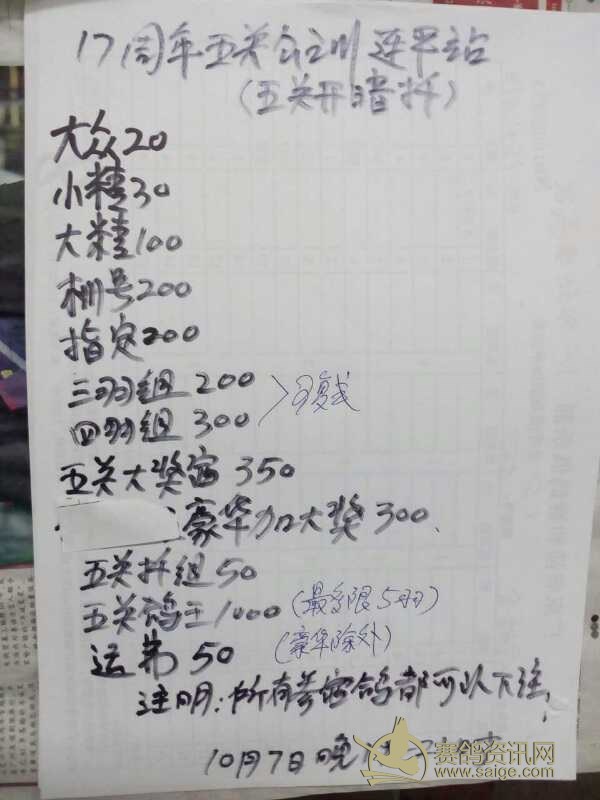 17周年五关合立川连平站
(五关开暗插)
大众20
小精30
大精100
棚号200
指定200
三羽组 200
四羽组 300 可复式
五关大奖赛 350
豪华加大奖 300.
五关插组 50
五关鸽王 1000 (最多限5羽)
运费 50 (豪华除外)
注明:所有参赛鸽都可以下注,
10月7日晚
赛鸽资讯网
www.saige.com